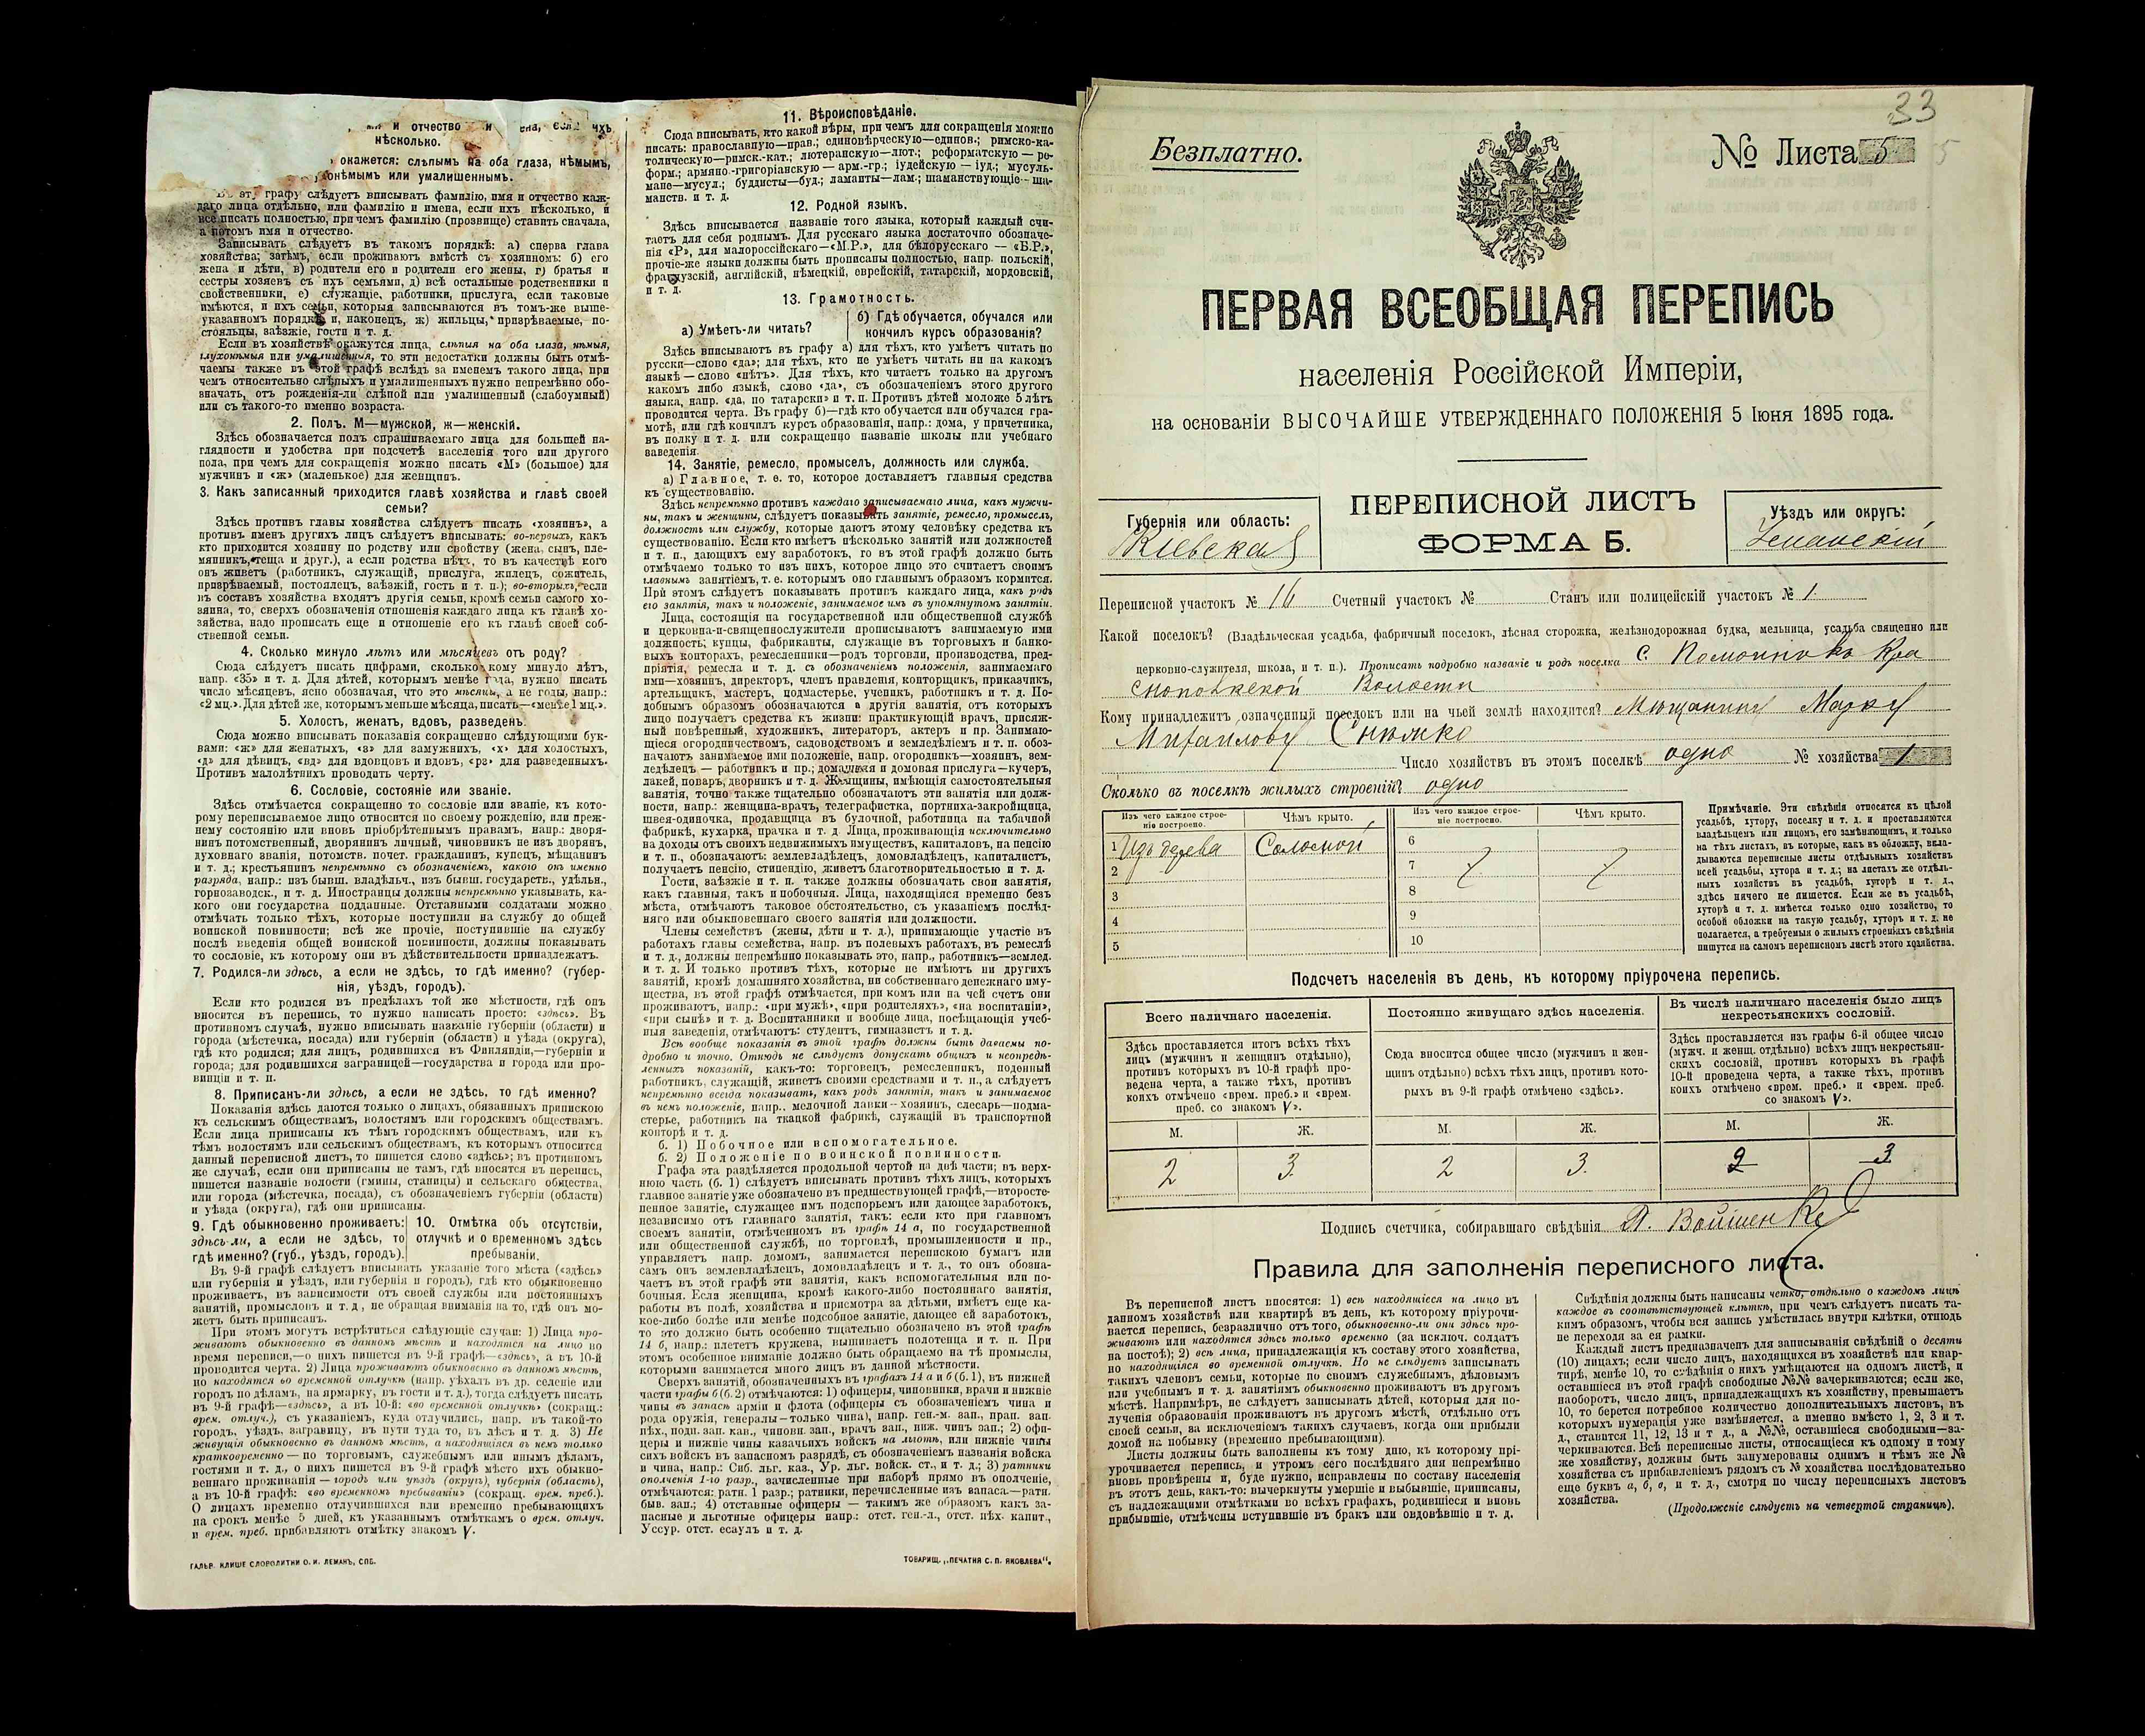 и отчество
нѣсколько.
окажется: слѣпымъ на оба глаза, нѣмымъ,
или умалишеннымъ.
эту графу слѣдуетъ вписывать фамилію, имя и отчество каж-
даго лица отдѣльно, или фамилію и имена, если ихъ нѣсколько, и
все писать полностью, при чемъ фамилію (прозвище) ставить сначала,
а потомъ имя и отчество.
Записывать слѣдуетъ въ такомъ порядкѣ: а) сперва глава
хозяйства; затѣмъ, если проживаютъ вмѣстѣ съ хозяиномъ: б) его
жена и дѣти, в) родители его и родители его жены, г) братья и
сестры хозяевъ съ ихъ семьями, д) всѣ остальные родственники и
свойственники, е) служащіе, работники, прислуга, если таковые
имѣются, и ихъ семьи, которыя записываются въ томъ-же выше-
указанномъ порядкѣ и, наконецъ, ж) жильцы, призрѣваемые, по-
стояльцы, заѣзжіе, гости и т. д.
Если въ хозяйствѣ окажутся лица, слѣпыя на оба глаза, нѣмыя,
глухонѣмыя или умалишенныя, то эти недостатки должны быть отмѣ-
чаемы также въ этой графѣ вслѣдъ за именемъ такого лица, при
чемъ относительно слѣпыхъ и умалишенныхъ нужно непремѣнно обо-
значать, отъ рожденія-ли слѣпой или умалишенный (слабоумный)
или съ такого-то именно возраста.
2. Полъ. М—мужской, ж—женскій.
Здѣсь обозначается полъ спрашиваемаго лица для большей на-
глядности и удобства при подсчетѣ населенія того или другого
пола, при чемъ для сокращенія можно писать «М» (большое) для
мужчинъ и «ж» (маленькое) для женщинъ.
3. Какъ записанный приходится главѣ хозяйства и главѣ своей
семьи?
Здѣсь противъ главы хозяйства слѣдуетъ писать «хозяинъ», а
противъ именъ другихъ лицъ слѣдуетъ вписывать: во-первыхъ, какъ
кто приходится хозяину по родству или свойству (жена, сынъ, пле-
мянникъ, теща и друг.), а если родства нѣтъ, то въ качествѣ кого
онъ живетъ (работникъ, служащій, прислуга, жилецъ, сожитель,
призрѣваемый, постоялецъ, заѣзжій, гость и т. п.); во-вторыхъ, если
въ составъ хозяйства входятъ другія семьи, кромѣ семьи самого хо-
зяина, то, сверхъ обозначенія отношенія каждаго лица къ главѣ хо-
зяйства, надо прописать еще и отношеніе его къ главѣ своей соб-
ственной семьи.
4. Сколько минуло лѣтъ или мѣсяцевъ отъ роду?
Сюда слѣдуетъ писать цифрами, сколько кому минуло лѣтъ,
напр. «35» и т. д. Для дѣтей, которымъ менѣе года, нужно писать
число мѣсяцевъ, ясно обозначая, что это мѣсяцы, а не годы, напр.:
«2 мц.». Для дѣтей же, которымъ меньше мѣсяца, писать—«менѣе 1 мц.».
5. Холостъ, женатъ, вдовъ, разведенъ.
Сюда можно вписывать показанія сокращенно слѣдующими бук-
вами: «ж» для женатыхъ, «з» для замужнихъ, «х» для холостыхъ,
«д» для дѣвицъ, «вд» для вдовцовъ и вдовъ, «рз» для разведенныхъ.
Противъ малолѣтнихъ проводить черту.
6. Сословіе, состояніе или званіе.
Здѣсь отмѣчается сокращенно то сословіе или званіе, къ кото-
рому переписываемое лицо относится по своему рожденію, или преж-
нему состоянію или вновь пріобрѣтеннымъ правамъ, напр.: дворя-
нинъ потомственный, дворянинъ личный, чиновникъ не изъ дворянъ,
духовнаго званія, потомств. почет. гражданинъ, купецъ, мѣщанинъ
и т. д.; крестьянинъ непремѣнно съ обозначеніемъ, какого онъ именно
разряда, напр.: изъ бывш. владѣльч., изъ бывш. государств., удѣльн.,
горнозаводск., и т. д. Иностранцы должны непремѣнно указывать, ка-
кого они государства подданные. Отставными солдатами можно
отмѣчать только тѣхъ, которые поступили на службу до общей
воинской повинности; всѣ же прочіе, поступившіе на службу
послѣ введенія общей воинской повинности, должны показывать
то сословіе, къ которому они въ дѣйствительности принадлежатъ.
7. Родился-ли здѣсь, а если не здѣсь, то гдѣ именно? (губер-
нія, уѣздъ, городъ).
Если кто родился въ предѣлахъ той же мѣстности, гдѣ онъ
вносится въ перепись, то нужно написать просто: «здѣсь». Въ
противномъ случаѣ, нужно вписывать названіе губерніи (области) и
города (мѣстечка, посада) или губерніи (области) и уѣзда (округа),
гдѣ кто родился; для лицъ, родившихся въ Финляндіи,—губерніи и
города; для родившихся заграницей—государства и города или про-
винціи и т. п.
8. Приписанъ-ли здѣсь, а если не здѣсь, то гдѣ именно?
Показанія здѣсь даются только о лицахъ, обязанныхъ припискою
къ сельскимъ обществамъ, волостямъ или городскимъ обществамъ.
Если лица приписаны къ тѣмъ городскимъ обществамъ, или къ
тѣмъ волостямъ или сельскимъ обществамъ, къ которымъ относится
данный переписной листъ, то пишется слово «здѣсь»; въ противномъ
же случаѣ, если они приписаны не тамъ, гдѣ вносятся въ перепись,
пишется названіе волости (гмины, станицы) и сельскаго общества,
или города (мѣстечка, посада), съ обозначеніемъ губерніи (области)
и уѣзда (округа), гдѣ они приписаны.
9. Гдѣ обыкновенно проживаетъ:
здѣсь-ли, а если не здѣсь, то
гдѣ именно? (губ., уѣздъ, городъ).
10. Отмѣтка объ отсутствіи,
отлучкѣ и о временномъ здѣсь
пребываніи.
Въ 9-й графѣ слѣдуетъ вписывать указаніе того мѣста («здѣсь»
или губернія и уѣздъ, или губернія и городъ), гдѣ кто обыкновенно
проживаетъ, въ зависимости отъ своей службы или постоянныхъ
занятій, промысловъ и т. д., не обращая вниманія на то, гдѣ онъ мо-
жетъ быть приписанъ.
При этомъ могутъ встрѣтиться слѣдующіе случаи: 1) Лица про-
живаютъ обыкновенно въ данномъ мѣстѣ и находятся на лицо во
время переписи,—о нихъ пишется въ 9-й графѣ—«здѣсь», а въ 10-й
проводится черта. 2) Лица проживаютъ обыкновенно въ данномъ мѣстѣ,
но находятся во временной отлучкѣ (напр. уѣхалъ въ др. селеніе или
городъ по дѣламъ, на ярмарку, въ гости и т. д.), тогда слѣдуетъ писать
въ 9-й графѣ—«здѣсь», а въ 10-й: «во временной отлучкѣ» (сокращ.:
врем. отлуч.), съ указаніемъ, куда отлучились, напр. въ такой-то
городъ, уѣздъ, заграницу, въ пути туда то, въ лѣсъ и т. д. 3) Не
живущія обыкновенно въ данномъ мѣстѣ, а находящіяся въ немъ только
кратковременно — по торговымъ, служебнымъ или инымъ дѣламъ,
гостями и т. д., о нихъ пишется въ 9-й графѣ мѣсто ихъ обыкно-
веннаго проживанія — городъ или уѣздъ (округъ), губернія (область),
а въ 10-й графѣ: «во временномъ пребываніи» (сокращ. врем. преб.).
О лицахъ временно отлучившихся или временно пребывающихъ
на срокъ менѣе 5 дней, къ указаннымъ отмѣткамъ о врем. отлуч.
и врем. преб. прибавляютъ отмѣтку знакомъ V.
ГАЛЬВ. КЛИШЕ СЛОВОЛИТНИ О. И. ЛЕМАНЪ, СПБ.
11. Вѣроисповѣданіе.
Сюда вписывать, кто какой вѣры, при чемъ для сокращенія можно
писать: православную—прав.; единовѣрческую—единов.; римско-ка-
толическую—римск.-кат.; лютеранскую—лют.; реформатскую — ре-
форм.; армяно.-григоріанскую — арм.-гр.; іудейскую — іуд.; мусуль-
мане—мусул.; буддисты—буд.; ламаиты—лам.; шаманствующіе—ша-
манств. и т. д.
12. Родной языкъ.
Здѣсь вписывается названіе того языка, который каждый счи-
таетъ для себя роднымъ. Для русскаго языка достаточно обозначе-
нія «Р», для малороссійскаго—«М.Р.», для бѣлорусскаго — «Б.Р.»,
прочіе-же языки должны быть прописаны полностью, напр. польскій,
французскій, англійскій, нѣмецкій, еврейскій, татарскій, мордовскій,
и т. д.
13. Грамотность.
а) Умѣетъ-ли читать?
б) Гдѣ обучается, обучался или
кончилъ курсъ образованія?
Здѣсь вписываютъ въ графу а) для тѣхъ, кто умѣетъ читать по
русски—слово «да»; для тѣхъ, кто не умѣетъ читать ни на какомъ
языкѣ — слово «нѣтъ». Для тѣхъ, кто читаетъ только на другомъ
какомъ либо языкѣ, слово «да», съ обозначеніемъ этого другого
языка, напр. «да, по татарски» и т. п. Противъ дѣтей моложе 5 лѣтъ
проводится черта. Въ графу б)—гдѣ кто обучается или обучался гра-
мотѣ, или гдѣ кончилъ курсъ образованія, напр.: дома, у причетника,
въ полку и т. д. или сокращенно названіе школы или учебнаго
заведенія.
14. Занятіе, ремесло, промыселъ, должность или служба.
а) Главное, т. е. то, которое доставляетъ главныя средства
къ существованію.
Здѣсь непремѣнно противъ каждаго записываемаго лица, какъ мужчи-
ны, такъ и женщины, слѣдуетъ показывать занятіе, ремесло, промыселъ,
должность или службу, которые даютъ этому человѣку средства къ
существованію. Если кто имѣетъ нѣсколько занятій или должностей
и т. п., дающихъ ему заработокъ, то въ этой графѣ должно быть
отмѣчаемо только то изъ нихъ, которое лицо это считаетъ своимъ
главнымъ занятіемъ, т. е. которымъ оно главнымъ образомъ кормится.
При этомъ слѣдуетъ показывать противъ каждаго лица, какъ родъ
его занятія, такъ и положеніе, занимаемое имъ въ упомянутомъ занятіи.
Лица, состоящія на государственной или общественной службѣ
и церковна-и-священнослужители прописываютъ занимаемую ими
должность; купцы, фабриканты, служащіе въ торговыхъ и банко-
выхъ конторахъ, ремесленники—родъ торговли, производства, пред-
пріятія, ремесла и т. д. съ обозначеніемъ положенія, занимаемаго
ими—хозяинъ, директоръ, членъ правленія, конторщикъ, приказчикъ,
артельщикъ, мастеръ, подмастерье, ученикъ, работникъ и т. д. По-
добнымъ образомъ обозначаются и другія занятія, отъ которыхъ
лицо получаетъ средства къ жизни: практикующій врачъ, присяж-
ный повѣренный, художникъ, литераторъ, актеръ и пр. Занимаю-
щіеся огородничествомъ, садоводствомъ и земледѣліемъ и т. п. обоз-
начаютъ занимаемое ими положеніе, напр. огородникъ—хозяинъ, зем-
ледѣлецъ — работникъ и пр.; домашняя и домовая прислуга—кучеръ,
лакей, поваръ, дворникъ и т. д. Женщины, имѣющія самостоятельныя
занятія, точно также тщательно обозначаютъ эти занятія или долж-
ности, напр.: женщина-врачъ, телеграфистка, портниха-закройщица,
швея-одиночка, продавщица въ булочной, работница на табачной
фабрикѣ, кухарка, прачка и т. д. Лица, проживающія исключительно
на доходы отъ своихъ недвижимыхъ имуществъ, капиталовъ, на пенсію
и т. п., обозначаютъ: землевладѣлецъ, домовладѣлецъ, капиталистъ,
получаетъ пенсію, стипендію, живетъ благотворительностью и т. д.
Гости, заѣзжіе и т. п. также должны обозначать свои занятія,
какъ главныя, такъ и побочныя. Лица, находящіяся временно безъ
мѣста, отмѣчаютъ таковое обстоятельство, съ указаніемъ послѣд-
няго или обыкновеннаго своего занятія или должности.
Члены семействъ (жены, дѣти и т. д.), принимающіе участіе въ
работахъ главы семейства, напр. въ полевыхъ работахъ, въ ремеслѣ
и т. д., должны непремѣнно показывать это, напр., работникъ—землед.
и т. д. И только противъ тѣхъ, которые не имѣютъ ни другихъ
занятій, кромѣ домашняго хозяйства, ни собственнаго денежнаго иму-
щества, въ этой графѣ отмѣчается, при комъ или на чей счетъ они
проживаютъ, напр.: «при мужѣ», «при родителяхъ», «на воспитаніи»,
«при сынѣ» и т. д. Воспитанники и вообще лица, посѣщающія учеб-
ныя заведенія, отмѣчаютъ: студентъ, гимназистъ и т. д.
Всѣ вообще показанія въ этой графѣ должны быть даваемы по-
дробно и точно. Отнюдь не слѣдуетъ допускать общихъ и неопредѣ-
ленныхъ показаній, какъ-то: торговецъ, ремесленникъ, поденный
работникъ, служащій, живетъ своими средствами и т. п., а слѣдуетъ
непремѣнно всегда показывать, какъ родъ занятія, такъ и занимаемое
въ немъ положеніе, напр. мелочной лавки—хозяинъ, слесарь—подма-
стерье, работникъ на ткацкой фабрикѣ, служащій въ транспортной
конторѣ и т. д.
б. 1) Побочное или вспомогательное.
б. 2) Положеніе по воинской повинности.
Графа эта раздѣляется продольной чертой на двѣ части; въ верх-
нюю часть (б. 1) слѣдуетъ вписывать противъ тѣхъ лицъ, которыхъ
главное занятіе уже обозначено въ предшествующей графѣ,—второсте-
пенное занятіе, служащее имъ подспорьемъ или дающее заработокъ,
независимо отъ главнаго занятія, такъ: если кто при главномъ
своемъ занятіи, отмѣченномъ въ графѣ 14 а, по государственной
или общественной службѣ, по торговлѣ, промышленности и пр.,
управляетъ напр. домомъ, занимается перепискою бумагъ или
самъ онъ землевладѣлецъ, домовладѣлецъ и т. д., то онъ обозна-
чаетъ въ этой графѣ эти занятія, какъ вспомогательныя или по-
бочныя. Если женщина, кромѣ какого-либо постояннаго занятія,
работы въ полѣ, хозяйства и присмотра за дѣтьми, имѣетъ еще ка-
кое-либо болѣе или менѣе подсобное занятіе, дающее ей заработокъ,
то это должно быть особенно тщательно обозначено въ этой графѣ
14 б, напр.: плететъ кружева, вышиваетъ полотенца и т. п. При
этомъ особенное вниманіе должно быть обращаемо на тѣ промыслы,
которыми занимается много лицъ въ данной мѣстности.
Сверхъ занятій, обозначенныхъ въ графахъ 14 а и б (б. 1), въ нижней
части графы б (б. 2) отмѣчаются: 1) офицеры, чиновники, врачи и нижніе
чины въ запасѣ арміи и флота (офицеры съ обозначеніемъ чина и
рода оружія, генералы—только чина), напр. ген.-м. зап., прап. зап.
пѣх., подп. зап. кав., чиновн. зап., врачъ зап., ниж. чинъ зап.; 2) офи-
церы и нижніе чины казачьихъ войскъ на льготѣ, или нижніе чины
сихъ войскъ въ запасномъ разрядѣ, съ обозначеніемъ названія войска
и чина, напр.: Сиб. льг. каз., Ур. льг. войск. ст., и т. д.; 3) ратники
ополченія 1-го разр., зачисленные при наборѣ прямо въ ополченіе,
отмѣчаются: ратн. 1 разр.; ратники, перечисленные изъ запаса.—ратн.
быв. зап.; 4) отставные офицеры — такимъ же образомъ какъ за-
пасные и льготные офицеры напр.: отст. ген.-л., отст. пѣх. капит.,
Уссур. отст. есаулъ и т. д.
ТОВАРИЩ. „ПЕЧАТНЯ С. П. ЯКОВЛЕВА“.
33
Безплатно.
№ Листа 5
5
ПЕРВАЯ ВСЕОБЩАЯ ПЕРЕПИСЬ
населенія Россійской Имперіи,
на основаніи ВЫСОЧАЙШЕ УТВЕРЖДЕННАГО ПОЛОЖЕНІЯ 5 Іюня 1895 года.
Губернія или область:
Кіевская
ПЕРЕПИСНОЙ ЛИСТЪ
ФОРМА Б.
Уѣздъ или округъ:
Уманскій
Переписной участокъ № 16 Счетный участокъ № Станъ или полицейскій участокъ № 1
Какой поселокъ? (Владѣльческая усадьба, фабричный поселокъ, лѣсная сторожка, желѣзнодорожная будка, мельница, усадьба священно или
церковно-служителя, школа, и т. п.). Прописать подробно названіе и родъ поселка С. Помойникъ Кра
снопольской Волости
Кому принадлежитъ означенный поселокъ или на чьей землѣ находится? Мѣщанину Марку
Михайлову Снѣжко
Число хозяйствъ въ этомъ поселкѣ одно № хозяйства 1
Сколько въ поселкѣ жилыхъ строеній? одно
Изъ чего каждое строе-
ніе построено.
Чѣмъ крыто.
Изъ чего каждое строе-
ніе построено.
Чѣмъ крыто.
1 Изъ дерева Соломой 6
2 7
3 8
4 9
5 10
Примѣчаніе. Эти свѣдѣнія относятся къ цѣлой
усадьбѣ, хутору, поселку и т. д. и проставляются
владѣльцемъ или лицомъ, его замѣняющимъ, и только
на тѣхъ листахъ, въ которые, какъ въ обложку, вкла-
дываются переписные листы отдѣльныхъ хозяйствъ
всей усадьбы, хутора и т. д.; на листахъ же отдѣль-
ныхъ хозяйствъ въ усадьбѣ, хуторѣ и т. д.,
здѣсь ничего не пишется. Если же въ усадьбѣ,
хуторѣ и т. д. имѣется только одно хозяйство, то
особой обложки на такую усадьбу, хуторъ и т. д. не
полагается, а требуемыя о жилыхъ строеніяхъ свѣдѣнія
пишутся на самомъ переписномъ листѣ этого хозяйства.
Подсчетъ населенія въ день, къ которому пріурочена перепись.
Всего наличнаго населенія.
Здѣсь проставляется итогъ всѣхъ тѣхъ
лицъ (мужчинъ и женщинъ отдѣльно),
противъ которыхъ въ 10-й графѣ про-
ведена черта, а также тѣхъ, противъ
коихъ отмѣчено «врем. преб.» и «врем.
преб. со знакомъ V».
Постоянно живущаго здѣсь населенія.
Сюда вносится общее число (мужчинъ и жен-
щинъ отдѣльно) всѣхъ тѣхъ лицъ, противъ кото-
рыхъ въ 9-й графѣ отмѣчено «здѣсь».
Въ числѣ наличнаго населенія было лицъ
некрестьянскихъ сословій.
Здѣсь проставляется изъ графы 6-й общее число
(мужч. и женщ. отдѣльно) всѣхъ лицъ некрестьян-
скихъ сословій, противъ которыхъ въ графѣ
10-й проведена черта, а также тѣхъ, противъ
коихъ отмѣчено «врем. преб.» и «врем. преб.
со знакомъ V».
М. Ж. М. Ж. М. Ж.
2 3 2 3 2 3
Подпись счетчика, собиравшаго свѣдѣнія
Правила для заполненія переписного листа.
Въ переписной листъ вносятся: 1) всѣ находящіеся на лицо въ
данномъ хозяйствѣ или квартирѣ въ день, къ которому пріурочи-
вается перепись, безразлично отъ того, обыкновенно-ли они здѣсь про-
живаютъ или находятся здѣсь только временно (за исключ. солдатъ
на постоѣ); 2) всѣ лица, принадлежащія къ составу этого хозяйства,
но находящіяся во временной отлучкѣ. Но не слѣдуетъ записывать
такихъ членовъ семьи, которые по своимъ служебнымъ, дѣловымъ
или учебнымъ и т. д. занятіямъ обыкновенно проживаютъ въ другомъ
мѣстѣ. Напримѣръ, не слѣдуетъ записывать дѣтей, которыя для по-
лученія образованія проживаютъ въ другомъ мѣстѣ, отдѣльно отъ
своей семьи, за исключеніемъ такихъ случаевъ, когда они прибыли
домой на побывку (временно пребывающими).
Листы должны быть заполнены къ тому дню, къ которому прі-
урочивается перепись, и утромъ сего послѣдняго дня непремѣнно
вновь провѣрены и, буде нужно, исправлены по составу населенія
въ этотъ день, какъ-то: вычеркнуты умершіе и выбывшіе, приписаны,
съ надлежащими отмѣтками во всѣхъ графахъ, родившіеся и вновь
прибывшіе, отмѣчены вступившіе въ бракъ или овдовѣвшіе и т. д.
Свѣдѣнія должны быть написаны четко, отдѣльно о каждомъ лицѣ
каждое въ соотвѣтствующей клѣткѣ, при чемъ слѣдуетъ писать та-
кимъ образомъ, чтобы вся запись умѣстилась внутри клѣтки, отнюдь
не переходя за ея рамки.
Каждый листъ предназначенъ для записыванія свѣдѣній о десяти
(10) лицахъ; если число лицъ, находящихся въ хозяйствѣ или квар-
тирѣ, менѣе 10, то свѣдѣнія о нихъ умѣщаются на одномъ листѣ, и
оставшіеся въ этой графѣ свободные №№ зачеркиваются; если же,
наоборотъ, число лицъ, принадлежащихъ къ хозяйству, превышаетъ
10, то берется потребное количество дополнительныхъ листовъ, въ
которыхъ нумерація уже измѣняется, а именно вмѣсто 1, 2, 3 и т.
д., ставится 11, 12, 13 и т д., а №№, оставшіеся свободными—за-
черкиваются. Всѣ переписные листы, относящіеся къ одному и тому
же хозяйству, должны быть занумерованы однимъ и тѣмъ же №
хозяйства съ прибавленіемъ рядомъ съ № хозяйства послѣдовательно
еще буквъ а, б, в, и т. д., смотря по числу переписныхъ листовъ
хозяйства.
(Продолженіе слѣдуетъ на четвертой страницѣ).